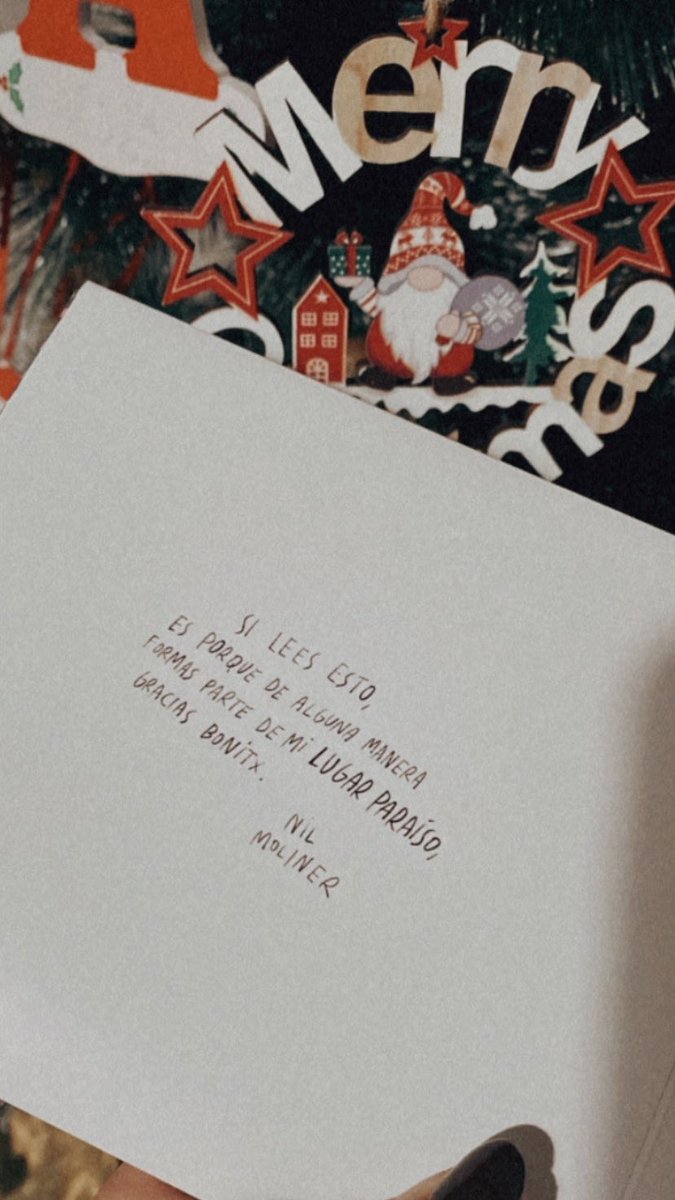 Merry
mas
SI LEES ESTO,
ES PORQUE DE ALGUNA MANERA
FORMAS PARTE DE MI LUGAR PARAÍSO,
GRACIAS BONITX.
NIL
MOLINER